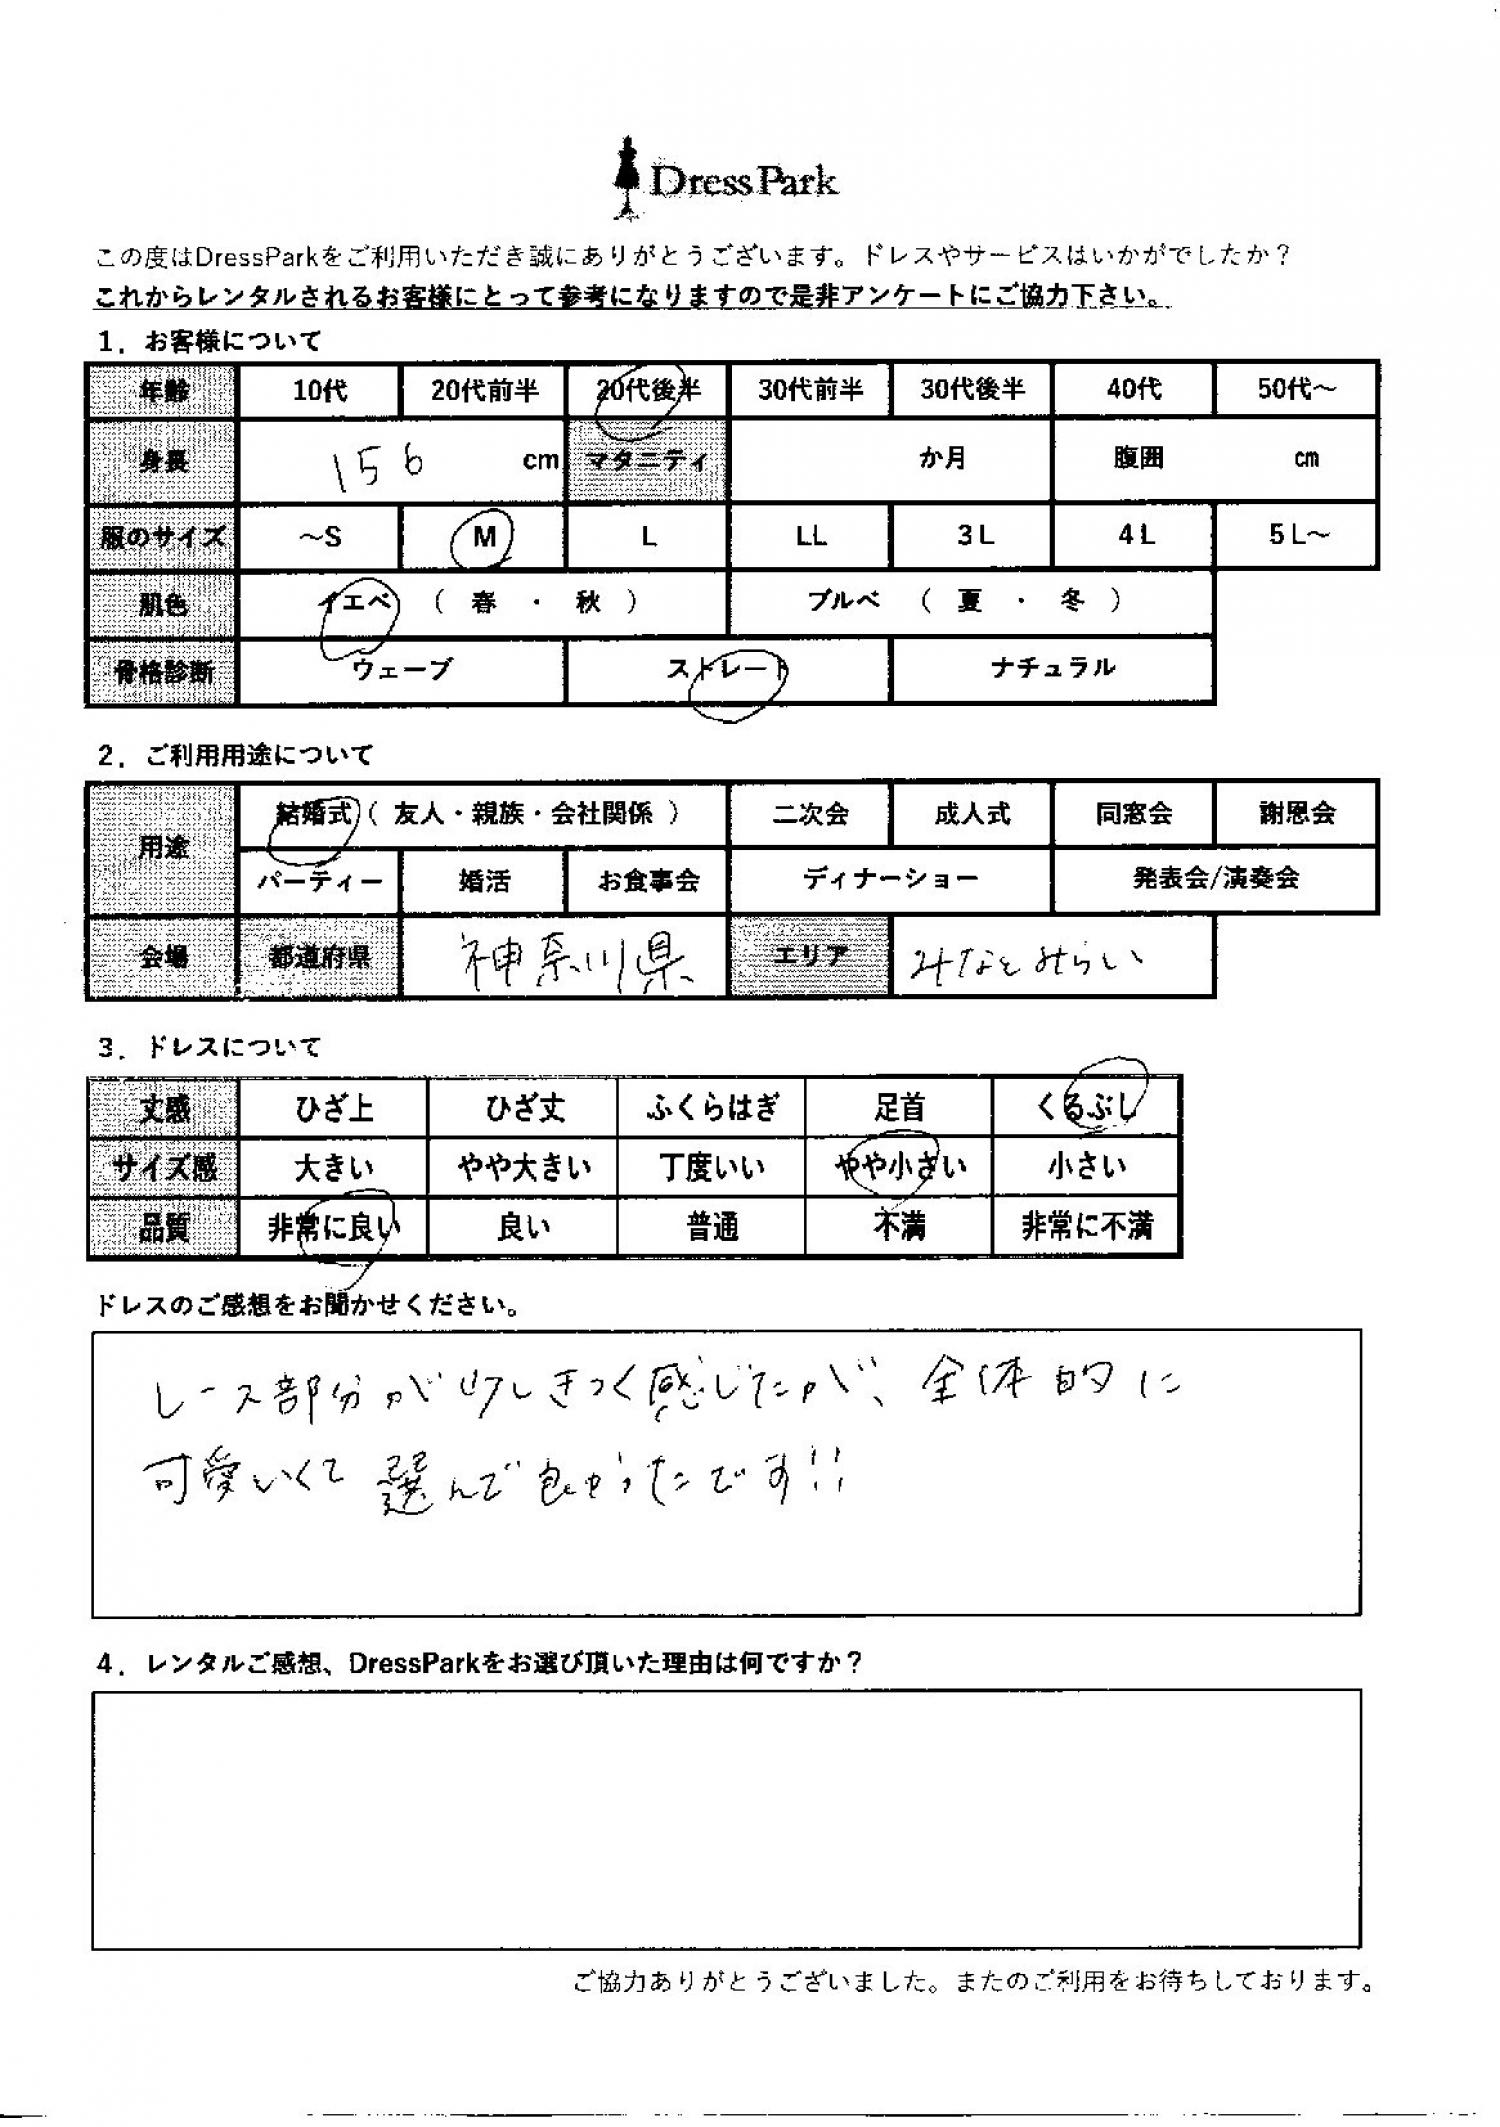 DressPark
この度はDressParkをご利用いただき誠にありがとうございます。ドレスやサービスはいかがでしたか？
これからレンタルされるお客様にとって参考になりますので是非アンケートにご協力下さい。
1．お客様について
年齢 10代 20代前半 20代後半 30代前半 30代後半 40代 50代～
身長 156 cm マタニティ か月 腹囲 cm
服のサイズ ～S M L LL 3L 4L 5L～
肌色 イエベ （ 春 ・ 秋 ） ブルベ （ 夏 ・ 冬 ）
骨格診断 ウェーブ ストレート ナチュラル
2．ご利用用途について
用途 結婚式（ 友人・親族・会社関係 ） 二次会 成人式 同窓会 謝恩会
パーティー 婚活 お食事会 ディナーショー 発表会/演奏会
会場 都道府県 神奈川県 エリア みなとみらい
3．ドレスについて
丈感 ひざ上 ひざ丈 ふくらはぎ 足首 くるぶし
サイズ感 大きい やや大きい 丁度いい やや小さい 小さい
品質 非常に良い 良い 普通 不満 非常に不満
ドレスのご感想をお聞かせください。
レース部分が少しきつく感じたが、全体的に
可愛いくて選んで良かったです!!
4．レンタルご感想、DressParkをお選び頂いた理由は何ですか？
ご協力ありがとうございました。またのご利用をお待ちしております。